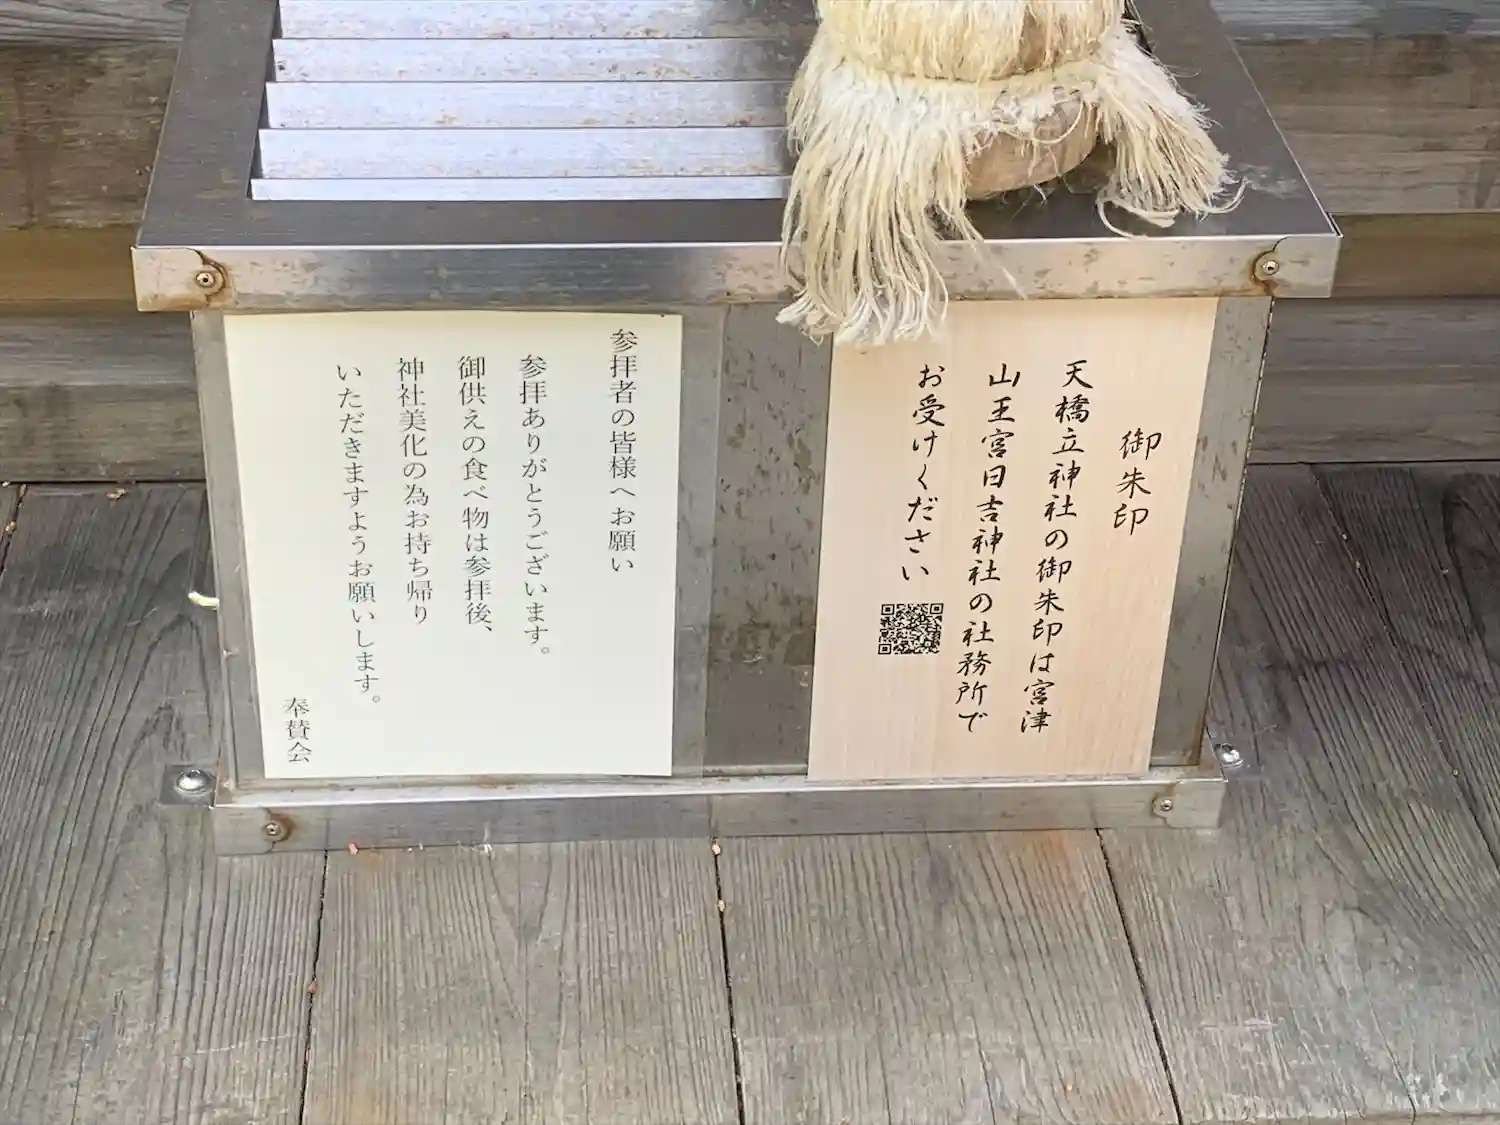 御朱印
天橋立神社の御朱印は宮津
山王宮日吉神社の社務所で
お受けください
参拝者の皆様へお願い
参拝ありがとうございます。
御供えの食べ物は参拝後、
神社美化の為お持ち帰り
いただきますようお願いします。
奉賛会